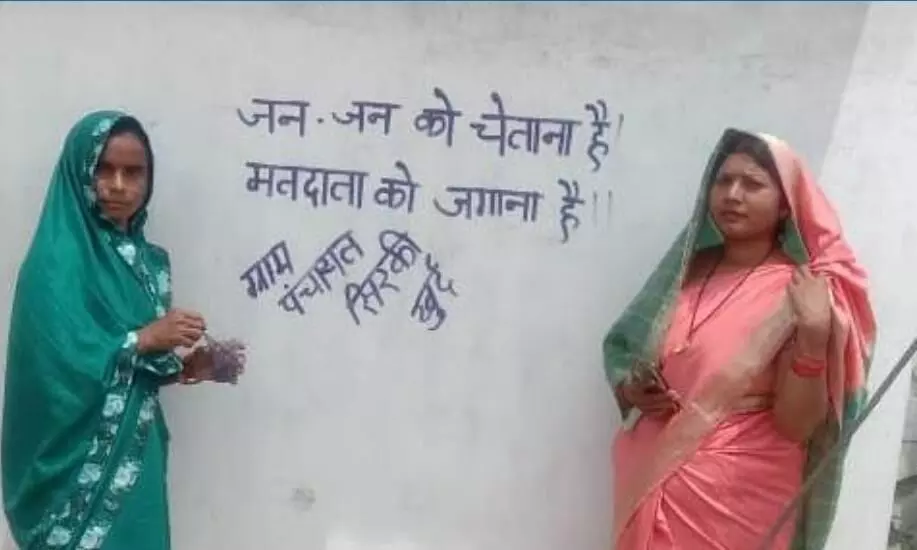 जन-जन को चेताना है।
मतदाता को जगाना है।।
ग्राम
पंचायत
सिरकी
खुर्द